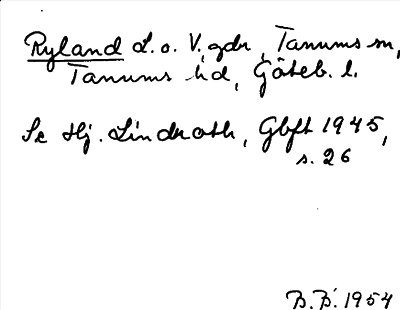 Ryland L. o. V. gdr, Tanums sn,
Tanums hd, Göteb. l.
Se Hj. Lindroth, Gbft 1945,
s. 26
B.B. 1954